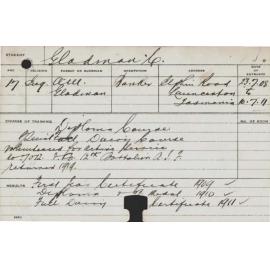 STUDENT
Gladman C.
AGE RELIGION PARENT OR GUARDIAN OCCUPATION ADDRESS DATE OF ENTRY
17 A.W. Gladman Banker Elphin Road
Launceston
Tasmania
23.7.08
to
10.7.11
COURSE OF TRAINING
Diploma Course
Dairy Course
Volunteered for active service
12th Battalion A.I.F.
returned 1919.
RESULTS First Year Certificate 1909
Diploma & Medal 1910
Full Dairy Certificate 1911